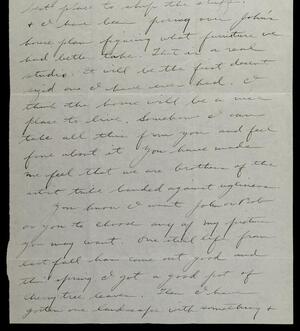 best place to ship the stuff.
& I have been poring over John's
house plan figuring what furniture we
had better take. That is a real
studio. It will be the first decent
sized one I have ever had. I
think the house will be a nice
place to live. Somehow I can
take all this from you and feel
fine about it. You have made
me feel that we are brothers of the
artist tribe banded against ugliness.
You know I want John or Bob
or you to choose any of my pictures
you may want. One still life from
last fall has come out good and
this spring I got a good pot of
cherry tree leaves. Then I have
gotten one landscape with something &